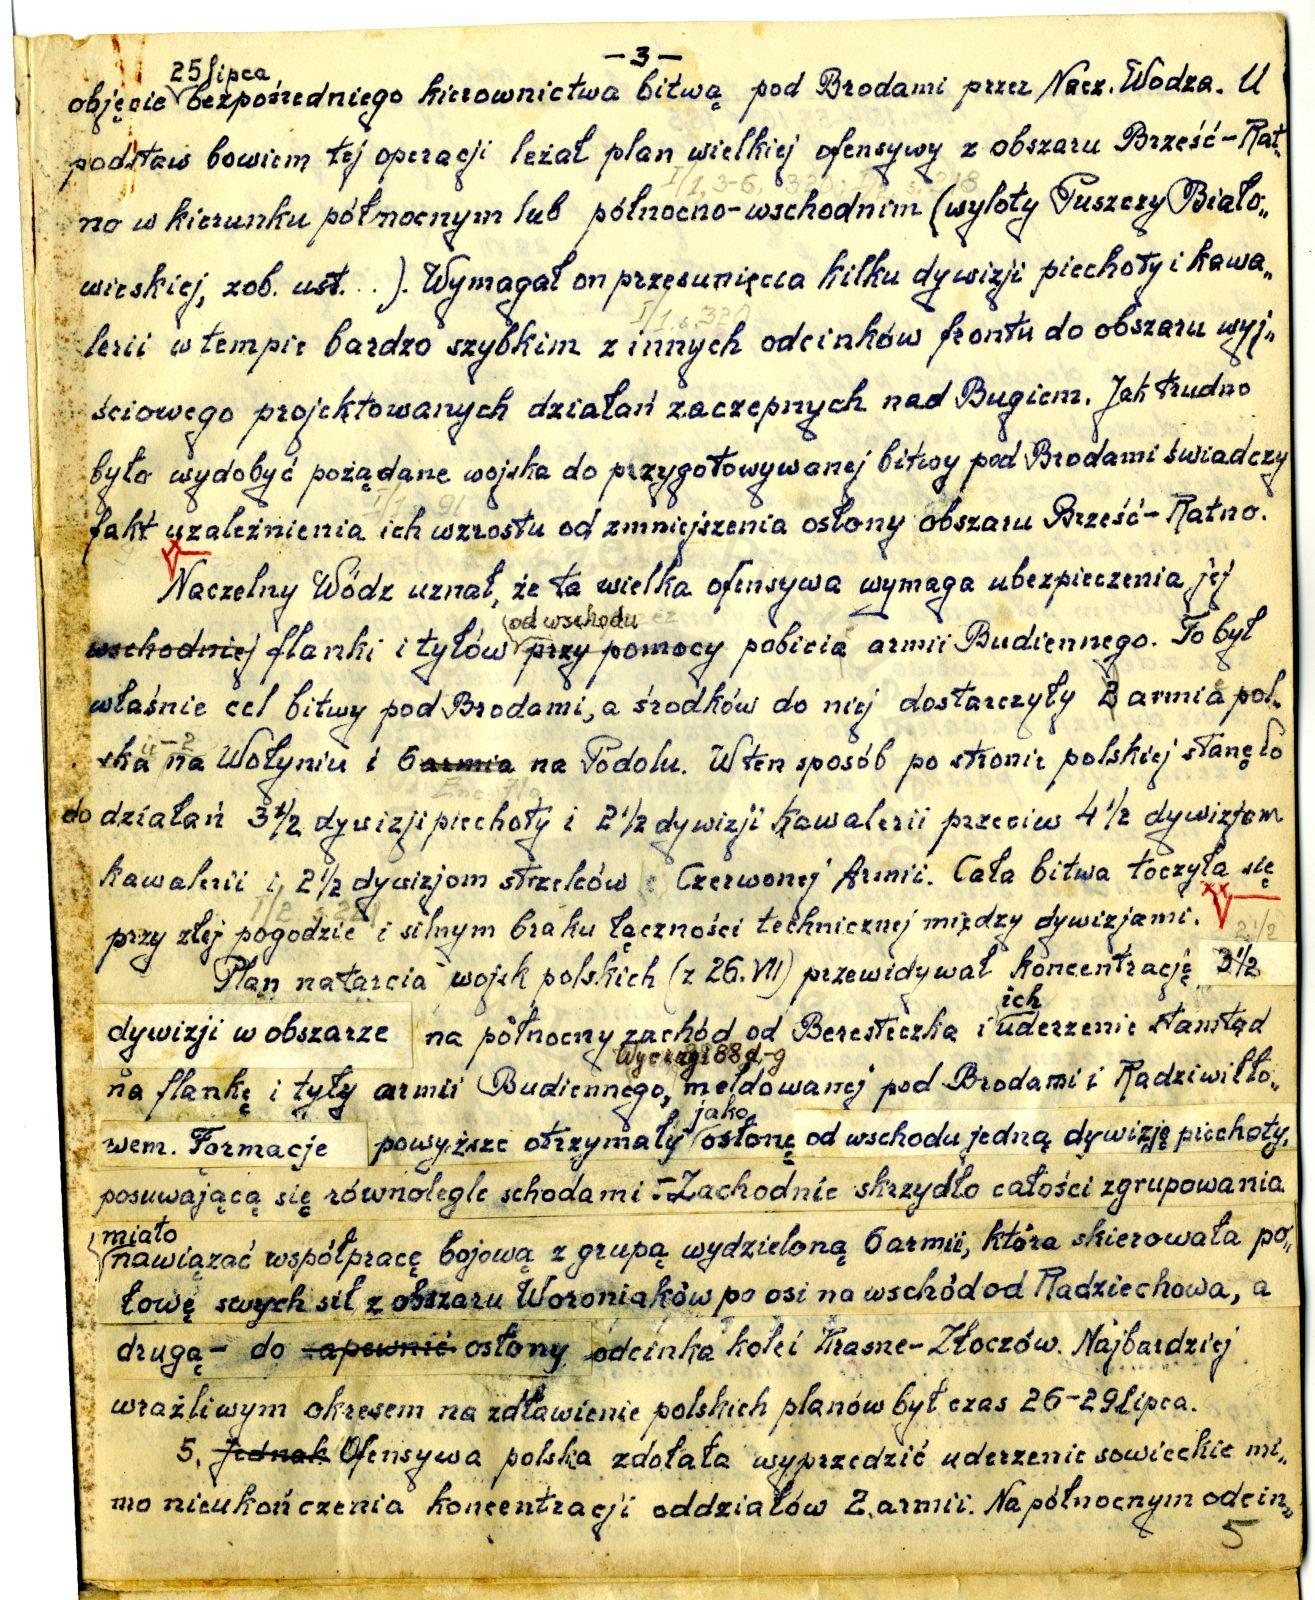 -3-
25 lipca
objęcie bezpośredniego kierownictwa bitwą pod Brodami przez Nacz. Wodza. U
podstaw bowiem tej operacji leżał plan wielkiej ofensywy z obszaru Brześć-Rat-
no w kierunku północnym lub północno-wschodnim (wyloty Puszczy Biało„
wieskiej, zob. ust. . .). Wymagał on przesunięcia kilku dywizji piechoty i kawa„
lerii w tempie bardzo szybkim z innych odcinków frontu do obszaru wyj„
ściowego projektowanych działań zaczepnych nad Bugiem. Jak trudno
było wydobyć pożądane wojska do przygotowywanej bitwy pod Brodami świadczy
fakt uzależnienia ich wzrostu od zmniejszenia osłony obszaru Brześć-Ratno.
Naczelny Wódz uznał, że ta wielka ofensywa wymaga ubezpieczenia jej
od wschodu
wschodniej flanki i tyłów przy pomocy pobicia armii Budiennego. To był
właśnie cel bitwy pod Brodami, a środków do niej dostarczyły 2 armia pol„
ska na Wołyniu i 6 armia na Podolu. W ten sposób po stronie polskiej stanęło
do działań 3 1/2 dywizji piechoty i 2 1/2 dywizji kawalerii przeciw 4 1/2 dywizjom
kawalerii i 2 1/2 dywizjom strzelców Czerwonej Armii. Cała bitwa toczyła się
przy złej pogodzie i silnym braku łączności technicznej między dywizjami.
2 1/2
Plan natarcia wojsk polskich (z 26.VII) przewidywał koncentrację 3 1/2
ich
dywizji w obszarze na północny zachód od Beresteczka i uderzenie stamtąd
na flankę i tyły armii Budiennego, meldowanej pod Brodami i Radziwiłło„
jako
wem. Formacje powyższe otrzymały osłonę od wschodu jedną dywizję piechoty,
posuwającą się równolegle schodami. - Zachodnie skrzydło całości zgrupowania
miało
nawiązać współpracę bojową z grupą wydzieloną 6 armii, która skierowała po„
łowę swych sił z obszaru Woroniaków po osi na wschód od Radziechowa, a
drugą - do zapewnić osłony odcinka kolei Krasne-Złoczów. Najbardziej
wrażliwym okresem na zdławienie polskich planów był czas 26-29 lipca.
5. Jednak Ofensywa polska zdołała wyprzedzić uderzenie sowieckie mi„
mo nieukończenia koncentracji oddziałów 2. armii. Na północnym odcin„
5